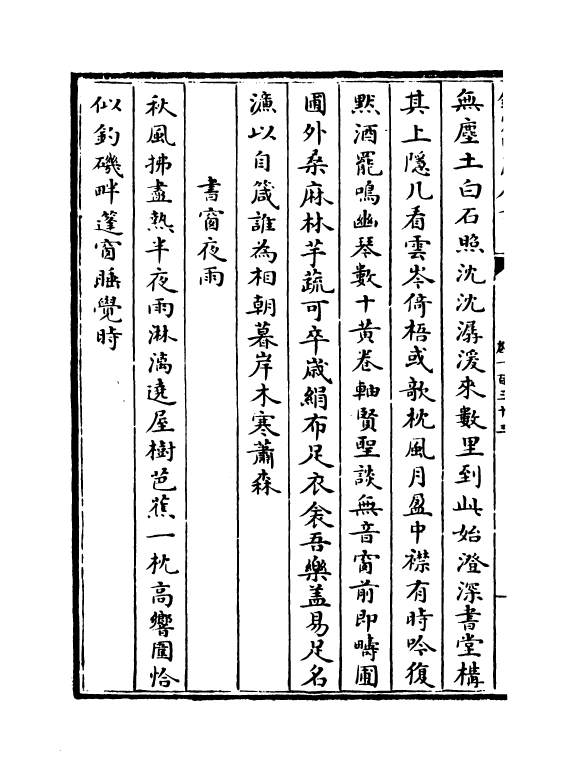 卷一百三十三
無塵土白石照沈沈潺湲來數里到此始澄深書堂構
其上隱几看雲岑倚梧或歌枕風月盈中襟有時吟復
黙酒罷鳴幽琴數十黃卷軸賢聖談無音窗前即疇圃
圃外桑麻林芋蔬可卒歲絹布足衣衾吾樂蓋易足名
濂以自箴誰為相朝暮岸木寒蕭森
書窗夜雨
秋風拂盡熱半夜雨淋漓遶屋樹芭蕉一枕高響圍恰
似釣磯畔蓬窗睡覺時